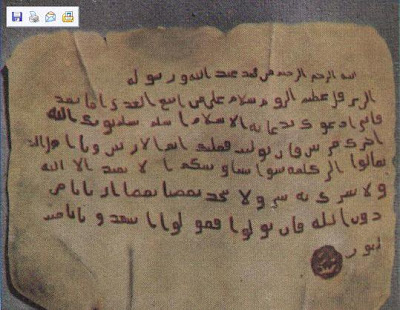 بسم الله الرحمن الرحيم من محمد عبد الله ورسوله
الى هرقل عظيم الروم سلام على من اتبع الهدى اما بعد
فانى ادعوك بدعاية الاسلام اسلم تسلم يوتك الله
اجرك مرتين فان توليت فعليك اثم الاريسين ويا اهل
تعالوا الى كلمة سوا بيننا وبينكم الا نعبد الا الله
ولا نشرك به شيا ولا يتخذ بعضنا بعضا اربابا من
دون الله فان تولوا فقولوا اشهدوا بانا مسلـ
مون